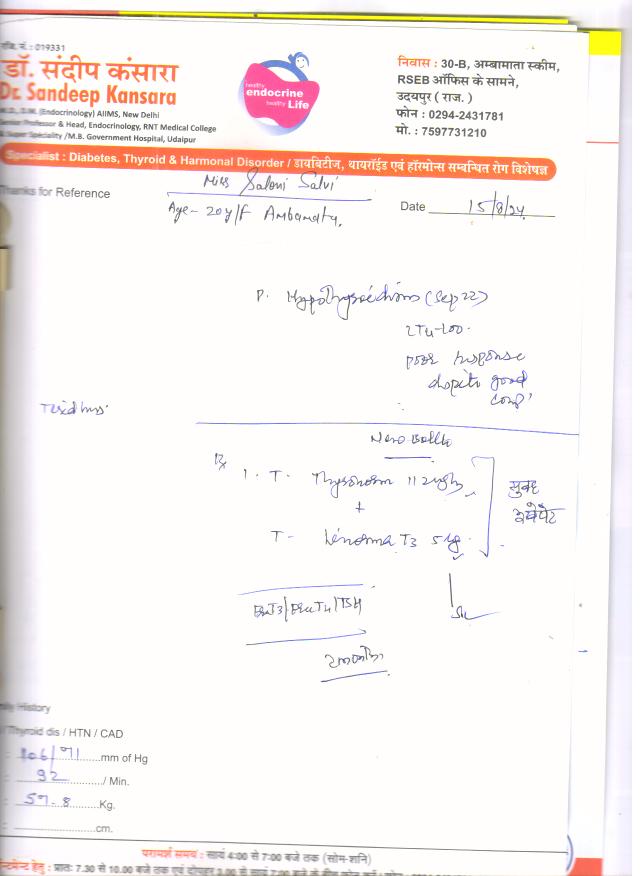 रजि. नं. : 019331
डॉ. संदीप कंसारा
Dr. Sandeep Kansara
M.D., D.M. (Endocrinology) AIIMS, New Delhi
Senior Professor & Head, Endocrinology, RNT Medical College
& Super Speciality /M.B. Government Hospital, Udaipur
healthy
endocrine
healthy Life
निवास : 30-B, अम्बामाता स्कीम,
RSEB ऑफिस के सामने,
उदयपुर ( राज. )
फोन : 0294-2431781
मो. : 7597731210
Specialist : Diabetes, Thyroid & Harmonal Disorder / डायबिटीज, थायरॉईड एवं हॉरमोन्स सम्बन्धित रोग विशेषज्ञ
Thanks for Reference
Miss Saloni Salvi
Age - 20y/F Ambamata,
Date 15/8/24
Hypothyroidism (Sep 22)
LT4-100.
poor response
despite good
comp'
New Bottle
Rx
1. T- Thyronorm 112
+
T- T3 5
सुबह
FreeT3/FreeT4/TSH
Family History
/ Thyroid dis / HTN / CAD
: 106/71 mm of Hg
: 92 / Min.
: 59.8 Kg.
: cm.
परामर्श समय : सायं 4:00 से 7:00 बजे तक (सोम-शनि)